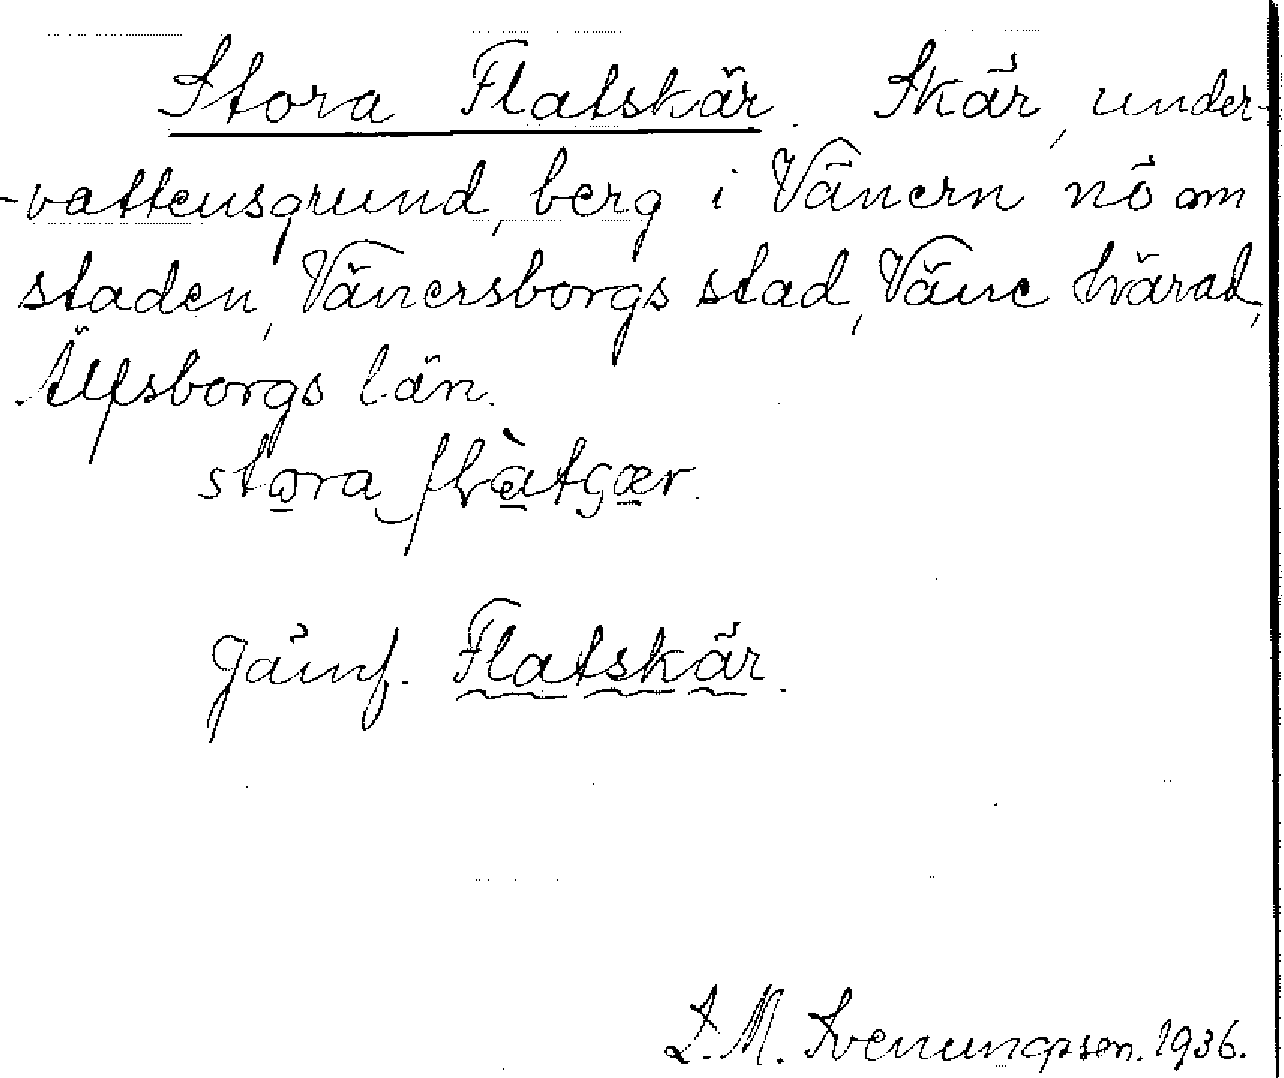 Stora Flatskär. Skär, under-
-vattensgrund, berg i Vänern nö om
staden, Vänersborgs stad, Väne härad,
Älfsborgs län.
stora flatsçær.
Jämf. Flatskär.
L.M. Svenungsson. 1936.